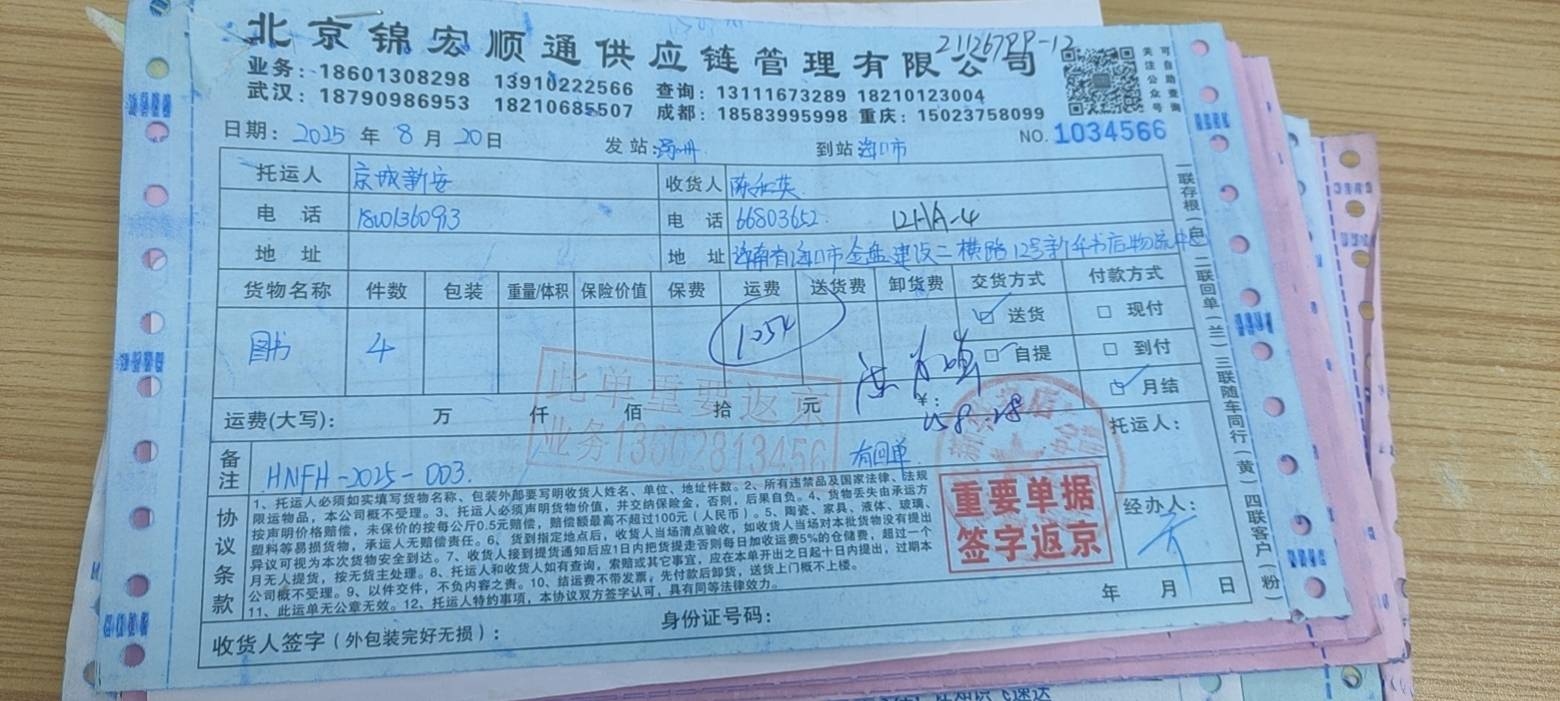 北京锦宏顺通供应链管理有限公司
业务：18601308298 13910222566 查询：13111673289 18210123004
武汉：18790986953 18210685507 成都：18583995998 重庆：15023758099
可自助查询
关注公众号
日期：2025年8月20日 发站： 到站海口市 NO.1034566
托运人 京城新安 收货人
电话 电话 66803652
地址 地址 海南省海口市金盘建设二横路12号新华书店物流中心
货物名称 件数 包装 重量/体积 保险价值 保费 运费 送货费 卸货费 交货方式 付款方式
图书 4 送货 现付
自提 到付
月结
此单重要返京
业务13602813456
运费(大写)： 万 仟 佰 拾 元 ¥： 托运人：
备注 HNFH-2025-003. 有回单
重要单据
签字返京
经办人：
协议条款
1、托运人必须如实填写货物名称、包装外部要写明收货人姓名、单位、地址件数。2、所有违禁品及国家法律、法规
限运物品，本公司概不受理。3、托运人必须声明货物价值，并交纳保险金，否则，后果自负。4、货物丢失由承运方
按声明价格赔偿，未保价的按每公斤0.5元赔偿，赔偿额最高不超过100元（人民币）。5、陶瓷、家具、液体、玻璃、
塑料等易损货物，承运人无赔偿责任。6、货到指定地点后，收货人当场清点验收，如收货人当场对本批货物没有提出
异议可视为本次货物安全到达。7、收货人接到提货通知后应1日内把货提走否则每日加收运费5%的仓储费，超过一个
月无人提货，按无货主处理。8、托运人和收货人如有查询，索赔或其它事宜，应在本单开出之日起十日内提出，过期本
公司概不受理。9、以件交件，不负内容之责。10、结运费不带发票，先付款后卸货，送货上门概不上楼。
11、此运单无公章无效。12、托运人特约事项，本协议双方签字认可，具有同等法律效力。
年 月 日
收货人签字（外包装完好无损）： 身份证号码：
一联存根（白）二联回单（兰）三联随车同行（黄）四联客户（粉）